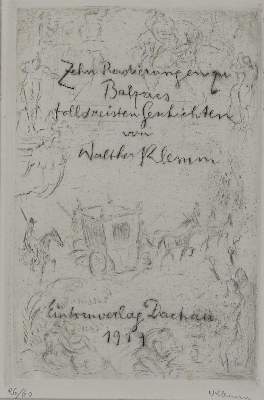 Zehn Radierungen zu
Balzacs
tolldreisten Geschichten
von
Walther Klemm
Einhornverlag Dachau
1919
Klemm